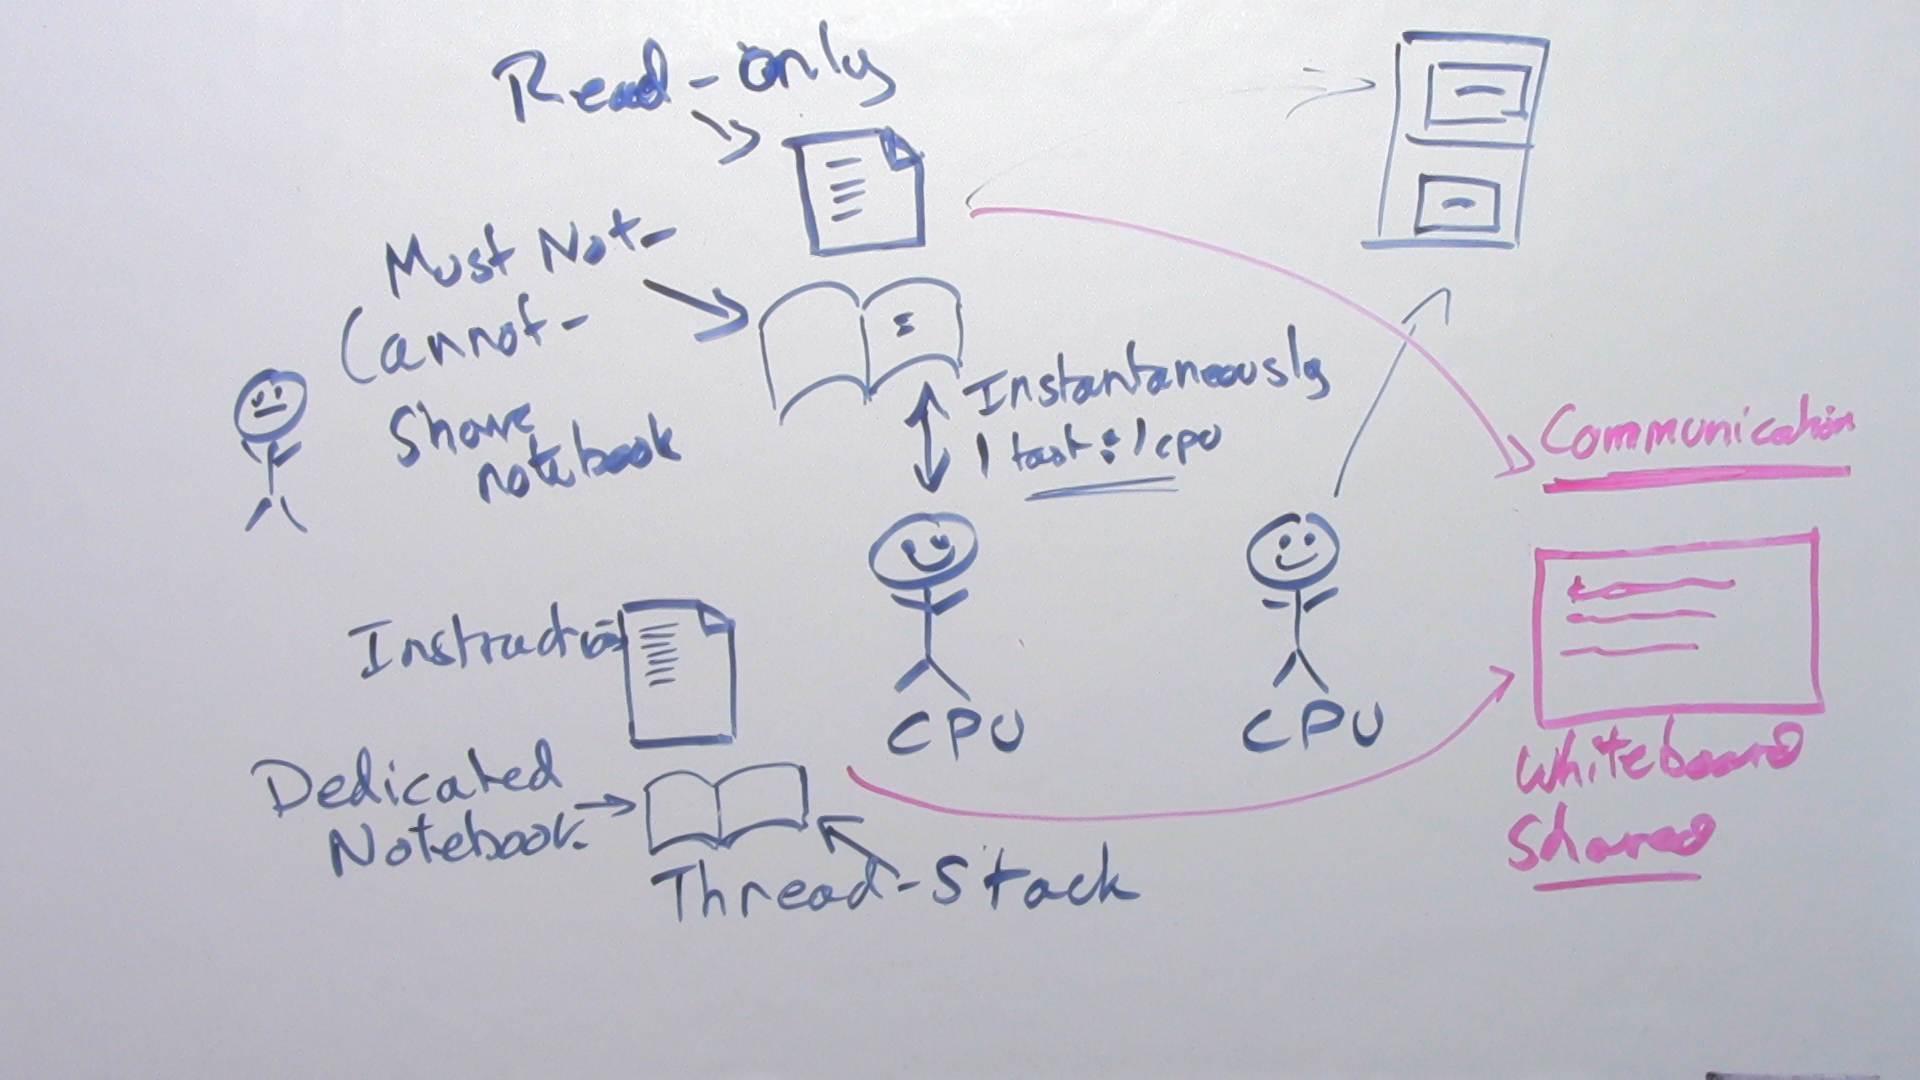 Read-only
Must Not-
Cannot-
Share
notebook
Instantaneously
1 task : 1 cpu
Communication
Instruction
CPU
CPU
Dedicated
Notebook
Thread-Stack
Whiteboard
Shared